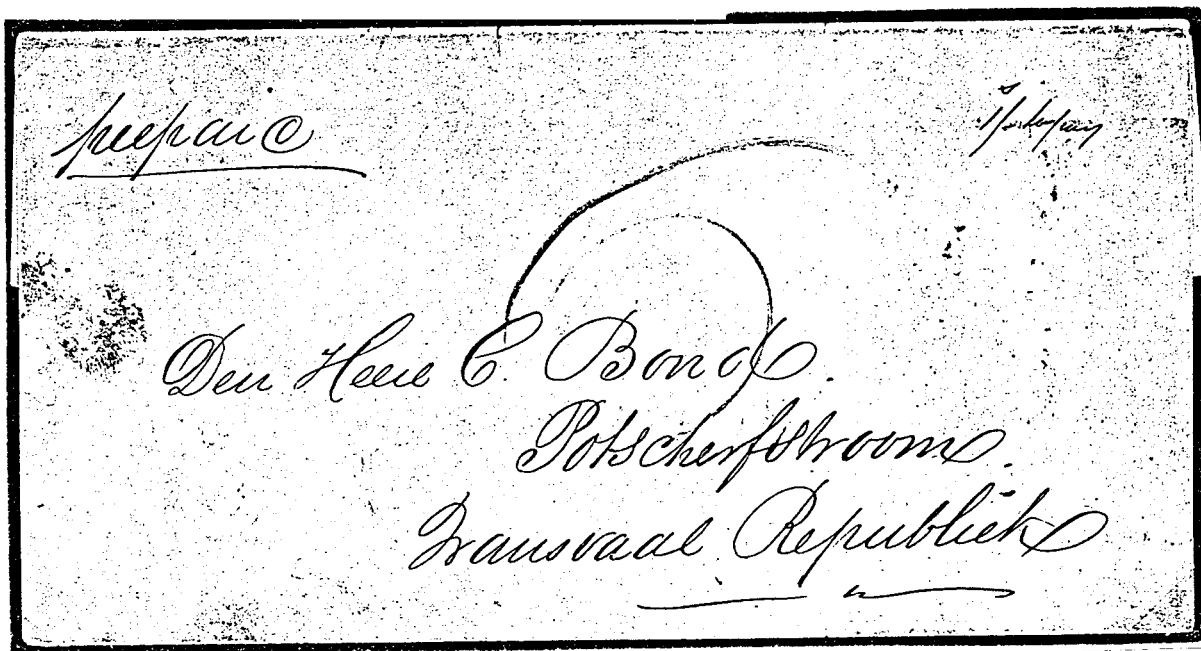 prepaid
Den Heer C. Bond.
Potscherfstroom.
Transvaal Republiek